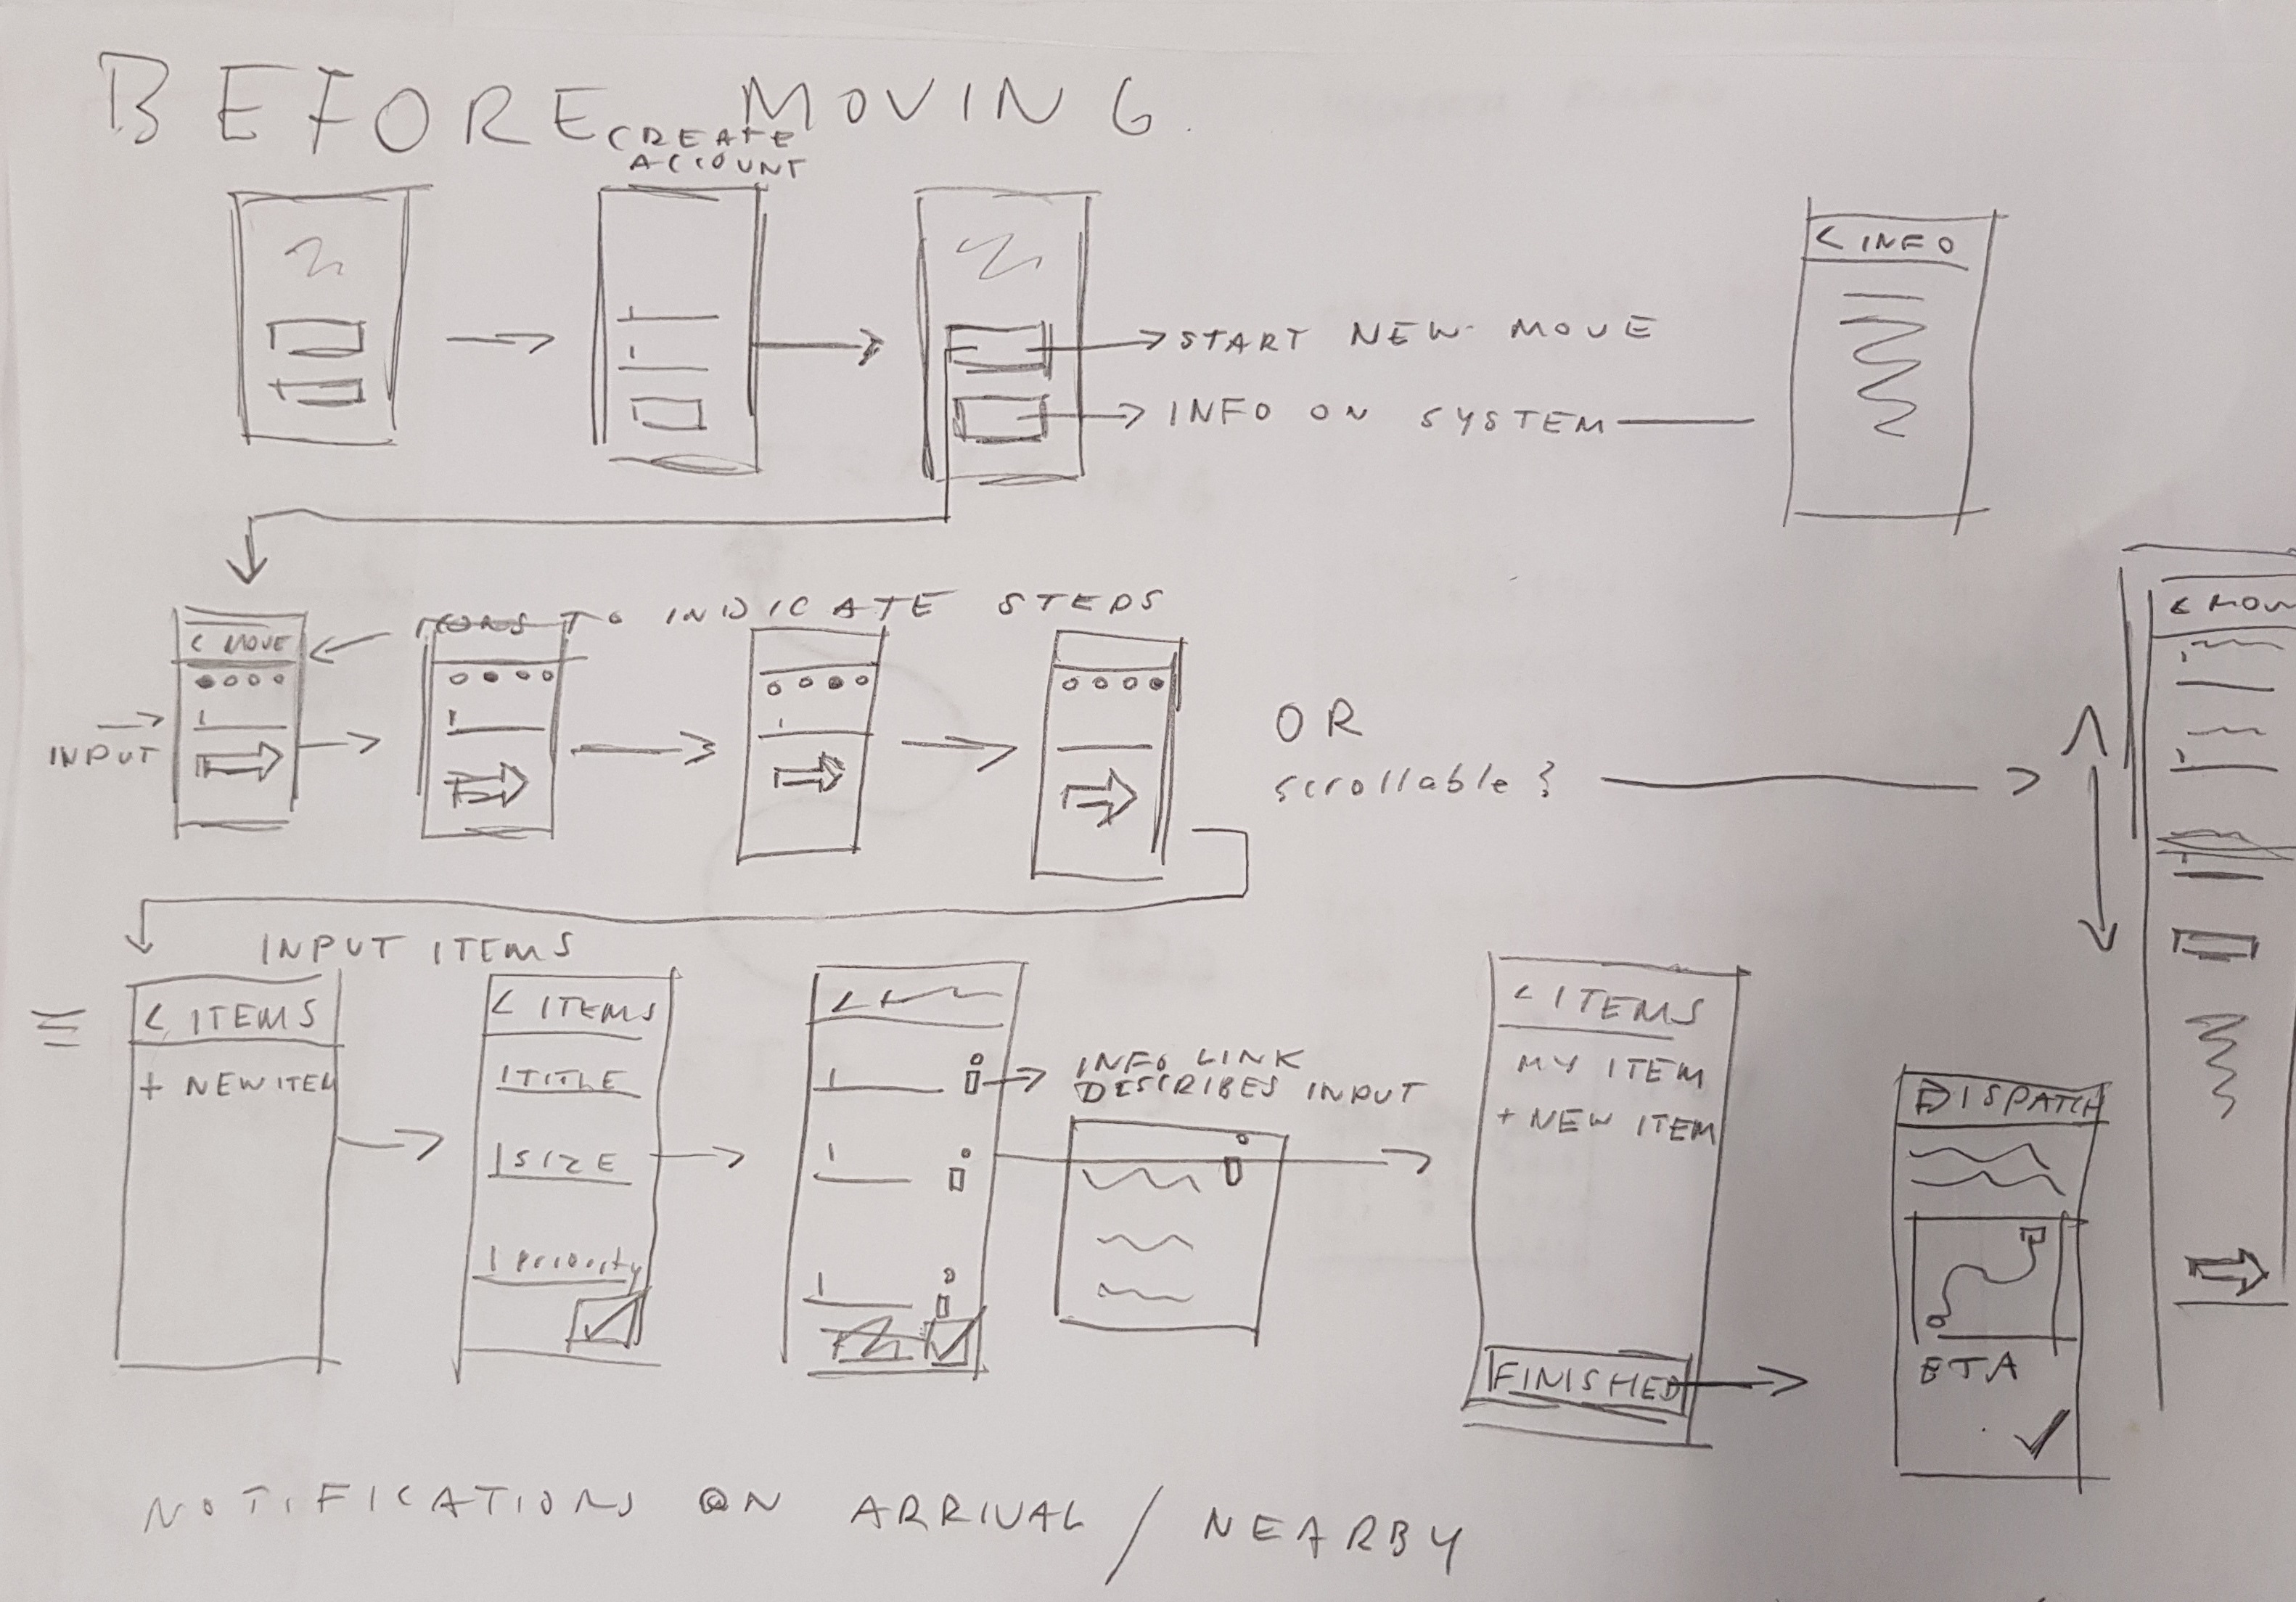 BEFORE MOVING.
CREATE
ACCOUNT
< INFO
START NEW MOVE
INFO ON SYSTEM
ICONS TO INDICATE STEPS
< MOVE
INPUT
OR
scrollable?
< MOV
INPUT ITEMS
< ITEMS
+ NEW ITEM
< ITEMS
TITLE
SIZE
priority
INFO LINK
DESCRIBES INPUT
< ITEMS
MY ITEM
+ NEW ITEM
FINISHED
DISPATCH
ETA
NOTIFICATIONS ON ARRIVAL / NEARBY